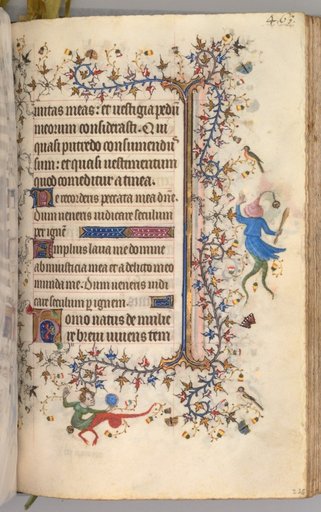 mitas meas: et uestigia pedū
meorum considerasti. Qui
quasi putredo consumendus
sum: et quasi uestimentum
quod comeditur a tinea.
Ne recorderis peccata mea dñe.
Dum ueneris iudicare seculum
per ignē
Amplius laua me domine
ab iniusticia mea et a delicto meo
munda me. Dum ueneris iudi
care seculum p ignem.
Homo natus de mulie
re breui uiuens tem